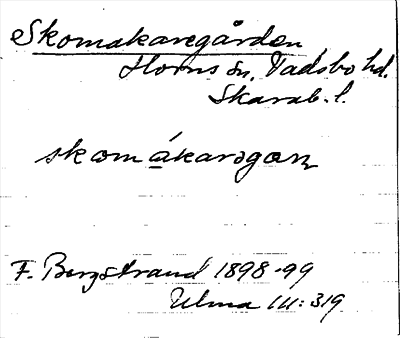 Skomakaregården
Horns sn, Vadsbo hd.
Skarab. l.
skomákarəgan
F. Bergstrand 1898-99
Ulma III: 319